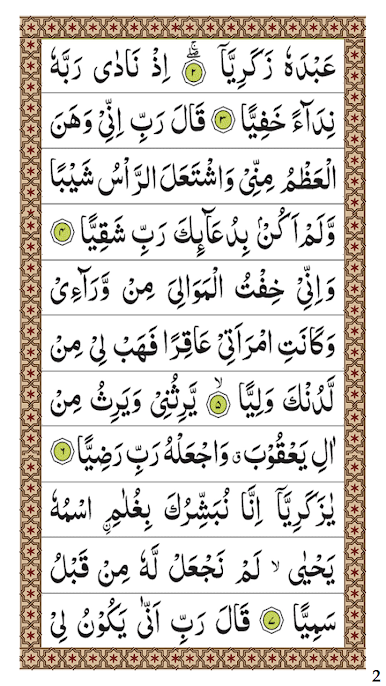 عَبْدَهٗ زَكَرِيَّا ۖۚ ﴿۲﴾ اِذْ نَادٰی رَبَّهٗ
نِدَآءً خَفِيًّا ﴿۳﴾ قَالَ رَبِّ اِنِّیْ وَهَنَ
الْعَظْمُ مِنِّیْ وَاشْتَعَلَ الرَّاْسُ شَيْبًا
وَّلَمْ اَكُنْۢ بِدُعَآئِكَ رَبِّ شَقِيًّا ﴿۴﴾
وَاِنِّیْ خِفْتُ الْمَوَالِیَ مِنْ وَّرَآءِیْ
وَكَانَتِ امْرَاَتِیْ عَاقِرًا فَهَبْ لِیْ مِنْ
لَّدُنْكَ وَلِيًّا ۙ ﴿۵﴾ يَّرِثُنِیْ وَيَرِثُ مِنْ
اٰلِ يَعْقُوْبَ ۖ وَاجْعَلْهُ رَبِّ رَضِيًّا ﴿۶﴾
يٰزَكَرِيَّاۤ اِنَّا نُبَشِّرُكَ بِغُلٰمِ ۨاسْمُهٗ
يَحْيٰی ۙ لَمْ نَجْعَلْ لَّهٗ مِنْ قَبْلُ
سَمِيًّا ﴿۷﴾ قَالَ رَبِّ اَنّٰی يَكُوْنُ لِیْ
2